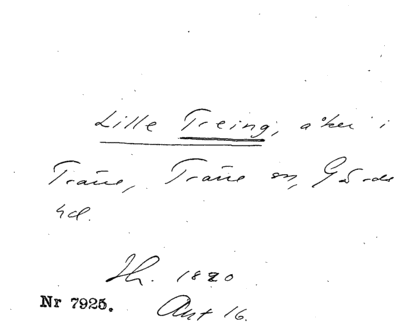 Lille Treing, åker i
Tråne, Tråne sn, Gärds
hd.
Jh. 1820
Nr 7925. Akt 16.